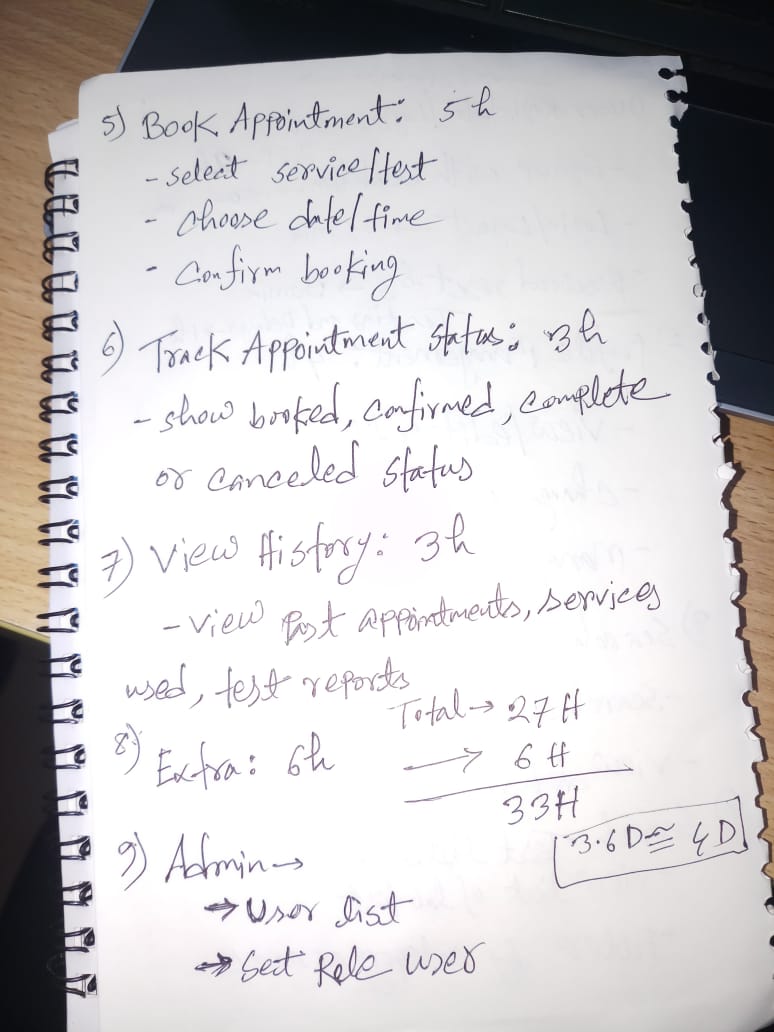 5) Book Appointment: 5h
- select service/test
- choose date/time
- Confirm booking
6) Track Appointment status: 3h
- show booked, confirmed, complete
or canceled status
7) View History: 3h
- view past appointments, services
used, test reports
Total → 27H
8) Extra: 6h → 6H
33H
3.6D ≅ 4D
9) Admin →
→ User list
→ Set Role user